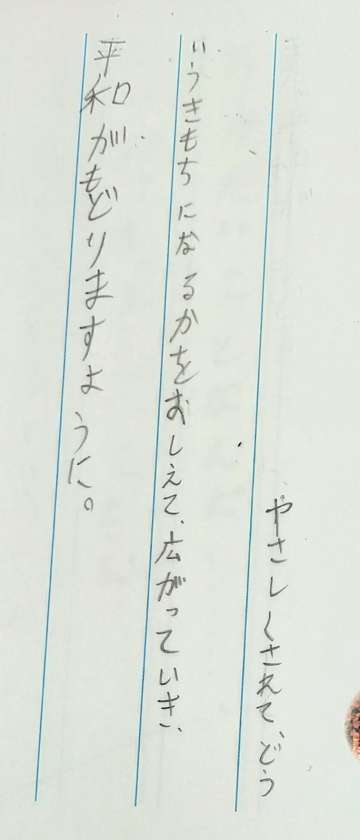 やさしくされて、どう
いうきもちになるかをおしえて、広がっていき、
平和がもどりますように。